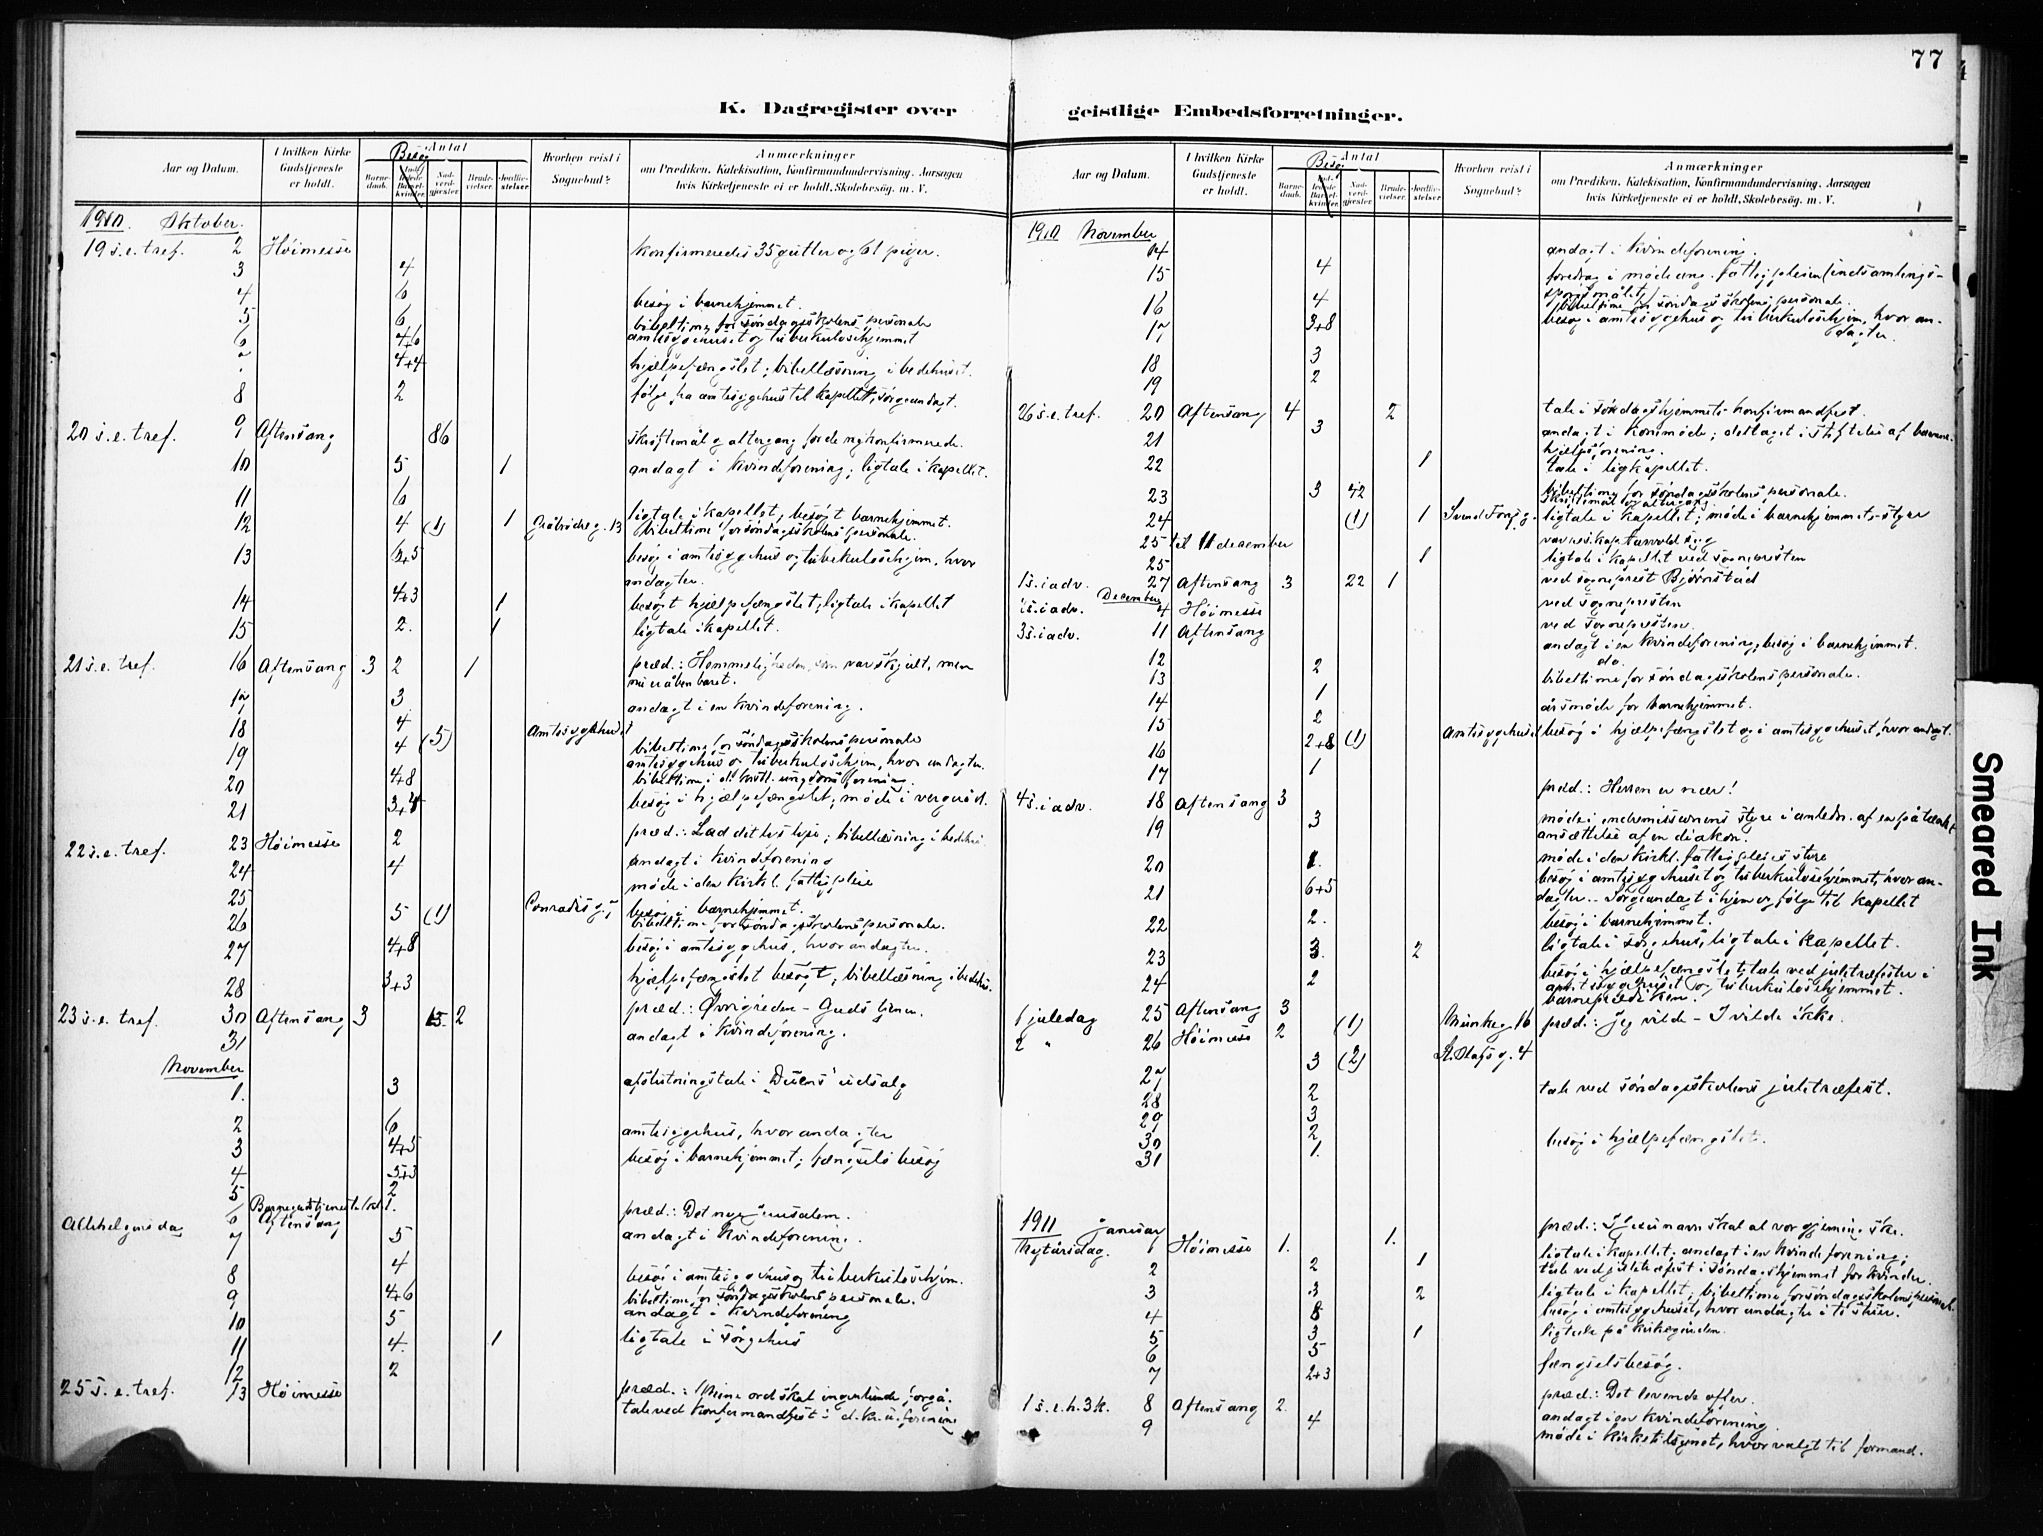 77
K. Dagregister over geistlige Embedsforretninger.
Aar og Datum.
I hvilken Kirke Gudstjeneste er holdt.
Antal
Besøg
Barnedaab.
Indledede Barselkvinder.
Nadverdgjester
Brudevielser.
Jordfæstelser.
Hvorhen reist i Sognebud?
Anmærkninger
om Prædiken, Katekisation, Konfirmandundervisning, Aarsagen
hvis Kirketjeneste ei er holdt, Skolebesøg. m. V.
1910. Oktober.
19 s.e.tref. 2 Høimesse konfirmeredes 35 gutter og 61 piger.
3 4
4 6 besøg i barnehjemmet.
5 6 bibeltime for søndagsskolens personale
6 4+6 amtssygehuset og tuberkuloschjemmet
7 4+4 hjælpefængslet; bibellæsning i bedehuset.
8 2 følge fra amtssygehus til kapellet, sørgeandagt.
20 s.e.tref. 9 Aftensang 86 skriftemål og altergang for de nykonfirmerede.
10 5 1 andagt i kvindeforening; ligtale i kapellet.
11 6
12 4 (1) 1 Gråbrødreg. 13 ligtale i kapellet, besøgt barnehjemmet.
bibeltime for søndagsskolens personale.
13 6+5 besøg i amtssygehus og tuberkuloschjem, hvor
andagter.
14 4+3 1 besøgt hjælpefængslet; ligtale i kapellet
15 2. 1 ligtale i kapellet.
21 s.e.tref. 16 Aftensang 3 2 1 præd.: Hemmeligheden, som var skjult, men
nu er åbenbaret.
17 3 andagt i en kvindeforening.
18 4
19 4 (5) Amtssygehuset bibeltime for søndagsskolens personale
20 4+8 amtssygehus og tuberkuloschjem, hvor andagter.
bibeltime i d. kristl. ungdomsforening.
21 3+4 besøg i hjælpefængslet; møde i vergeråd.
22 s.e.tref. 23 Høimesse 2 præd.: Lad dit lys lyse; bibellæsning i bedehus
24 4 andagt i kvindeforening
25 møde i den kirkl. fattigpleie
26 5 (1) Conradis g. besøg i barnehjemmet.
bibeltime for søndagsskolens personale.
27 4+8 besøg i amtssygehus, hvor andagter.
28 3+3 hjælpefængslet besøgt; bibellæsning i bedehus.
23 s.e.tref. 30 Aftensang 3 15 2 præd.: Øvrigheden - Guds tjener.
31 andagt i kvindeforening.
November
1. 3 afslutningstale i "Duens" udsalg
2 6
3 4+5 amtssygehus, hvor andagter
4 5+3 besøg i barnehjemmet; fængselsbesøg
5 2
Allehelgensdag 6 Barnegudstjeneste 1. Aftensang præd.: Det nye Jerusalem.
7 5 andagt i kvindeforening.
8 4
9 4+6 besøg i amtssygehus og tuberkuloschjem.
bibeltime for søndagsskolens personale.
10 5 andagt i kvindeforening
11 4. 1 ligtale i sørgehus
12 2
25 s.e.tref. 13 Høimesse præd.: Mine ord skal ingenlunde forgå.
tale ved konfirmandfest i d. kr. u. forening
Aar og Datum.
I hvilken Kirke Gudstjeneste er holdt.
Antal
Besøg
Barnedaab.
Indledede Barselkvinder.
Nadverdgjester
Brudevielser.
Jordfæstelser.
Hvorhen reist i Sognebud?
Anmærkninger
om Prædiken, Katekisation, Konfirmandundervisning, Aarsagen
hvis Kirketjeneste ei er holdt, Skolebesøg. m. V.
1910 November
14 andagt i kvindeforening.
15 4 foredrag i møde ang. fattigpleien (indsamlings-
spørsmålet)
16 4 bibeltime for søndagsskolens personale.
17 3+8 besøg i amtssygehus og tuberkuloschjem, hvor an-
dagter.
18 3
19 2
26 s.e.tref. 20 Aftensang 4 2 tale i søndagshjemmets konfirmandfest.
21 3 andagt i kommøde; deltaget i stiftelse af barne-
hjælpsforening.
22 1 tale i ligkapellet.
23 3 42 bibeltime for søndagsskolens personale.
skriftemål og altergang
24 (1) 1 Svend Foyns g. ligtale i kapellet; møde i barnehjemmets styre
25 til 11 december
25 1 ligtale i kapellet ved sognepresten
1 s. i adv. 27 Aftensang 3 22 1 ved sogneprest Bjørnstad
December
2 s. i adv. 4 Høimesse ved sognepresten
3 s. i adv. 11 Aftensang ved sognepresten.
12 andagt i en kvindeforening, besøg i barnehjemmet.
13 2 do.
14 1 bibeltime for søndagsskolens personale.
15 2 årsmøde for barnehjemmet.
16 2+8 (1) Amtssygehuset besøg i hjælpefængslet og i amtssygehuset, hvor andagt.
17 1
4 s. i adv. 18 Aftensang 3 præd.: Herren er nær!
19 3 møde i indremissionens styre i anledn. af en påtænkt
ansættelse af en diakon.
20 1. møde i den kirkl. fattigpleies styre
21 6+5 besøg i amtssygehuset og tuberkuloschjemmet, hvor an-
dagter. Sørgeandagt i hjem og følge til kapellet
22 2. besøg i barnehjemmet.
23 3. 2 ligtale i sørgehus, ligtale i kapellet.
24 2 besøg i hjælpefængslet; tale ved juletræfester i
amtssygehuset og tuberkuloschjemmet.
1 juledag 25 Aftensang 3 barneprædiken!
2 " 26 Høimesse 2 (1) Munkeg. 16 præd.: Jeg vilde - I vilde ikke.
27 3 (2) St. Olafs g. 4
28 2 tale ved søndagsskolens juletræfest.
29 3
30 2 besøg i hjælpefængslet.
31 1.
1911 Januar
Nytårsdag. 1 Høimesse 1. 1. præd.: I Jesu navn skal al vor gjerning ske.
2 2 1 ligtale i kapellet; andagt i en kvindeforening;
tale ved juletræfest i søndagshjemmet for kvinder.
3 3 2 ligtale i kapellet; bibeltime for søndagsskolens personale.
4 8 besøg i amtssygehuset, hvor andagter i to stuer.
5 3 1 ligtale på kirkegården.
6 5
7 2+3 fængselsbesøg.
1 s.e.h.3k. 8 Aftensang 2. præd.: Det levende offer.
9 4 andagt i en kvindeforening
møde i kirketilsynet, hvor valgt til formand.
Smeared Ink